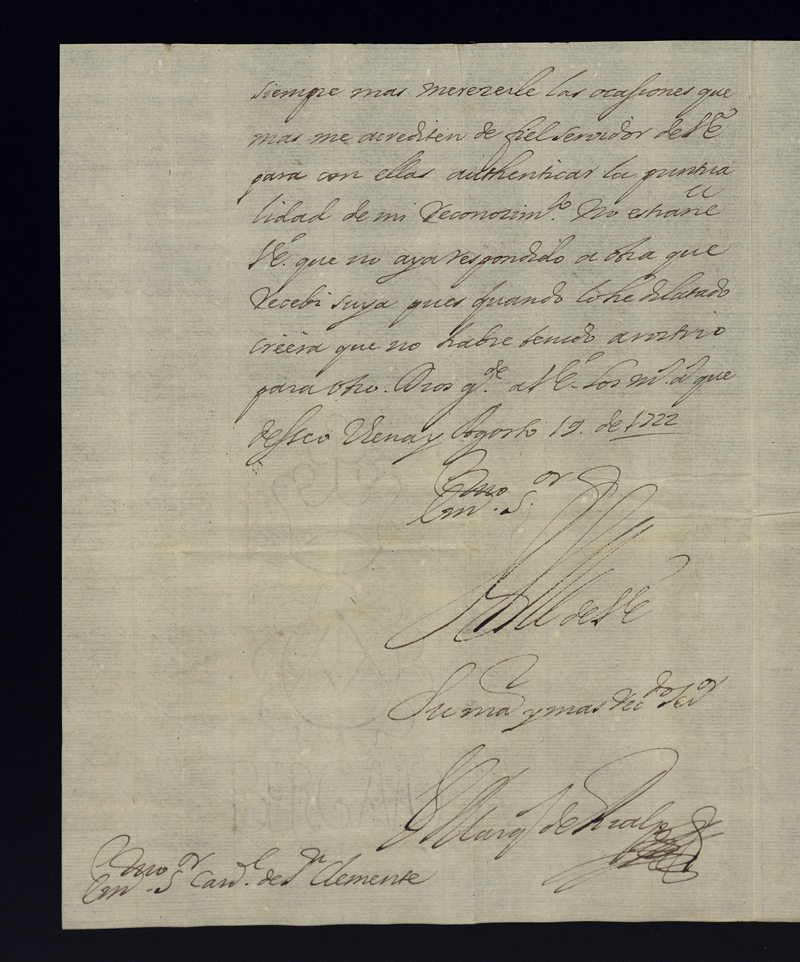 siempre mas merezerle las ocasiones que
mas me acrediten de fiel servidor de VE
para con ellas authenticar la puntua
lidad de mi reconozimto. No estrañe
VE. que no aya respondido a otra que
recebi suya pues quando lo he dilatado
creera que no habre tenido arvitrio
para otro. Dios gde. a VE. los ms. as que
desseo Viena y Agosto 19. de 1722
Emmo. Sor
de VE
Su mas y mas Seror
El Marqs de Rialp
Emmo. Sor Cardl. de Sn Clemente